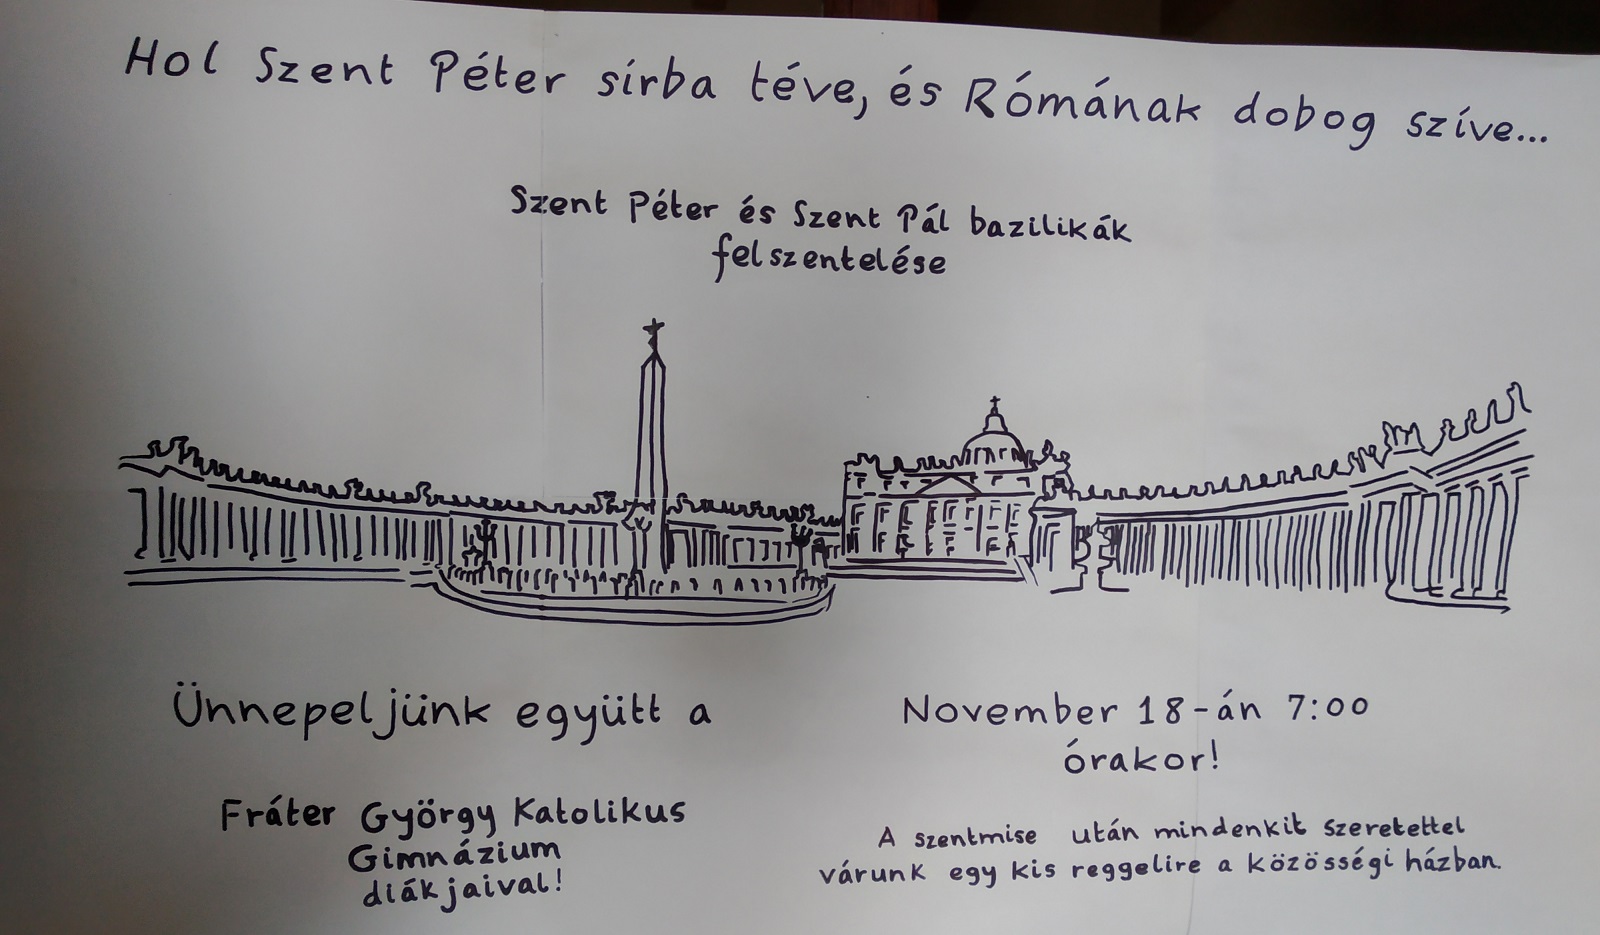 Hol Szent Péter sírba téve, és Rómának dobog szíve...
Szent Péter és Szent Pál bazilikák
felszentelése
Ünnepeljünk együtt a
Fráter György Katolikus
Gimnázium
diákjaival!
November 18-án 7:00
órakor!
A szentmise után mindenkit szeretettel
várunk egy kis reggelire a közösségi házban.